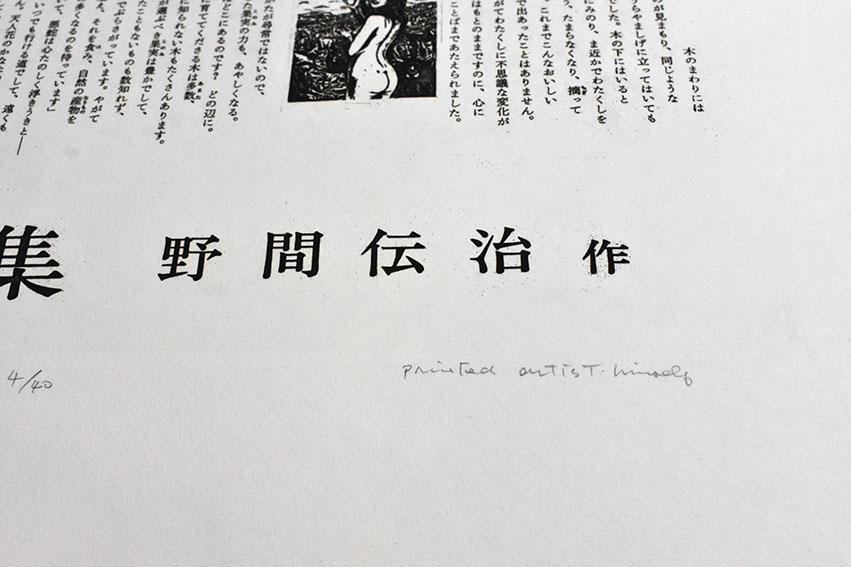 木のまわりには
のが見まもり、同じような
うらやましげに立ってはいても
でした。木の下にはいると
にみのり、ま近かでわたくしを
う、たまらなくなり、摘って
これまでこんなおいしい
で出あったことはありません。
がてわたくしに不思議な変化が
はもとのままですのに、心に
ことばまであたえられました。
かたが尋常ではないので、
た果実の力も、あやしくなる。
どこにあるのです？ どの辺に。
に育ててくださる木は多数、
に知られない木もたくさんあります。
が選ぶべき果実は豊かでして、
たこともないものも数知れず、
でぶらさがっています。やがて
え、それを食み、自然の産物を
多くなるのを待っています」
いて、悪蛇は心たのしく浮きうきと──
いつでも行ける道でして、遠くも
集 野間伝治 作
4/40
printed artist. himself